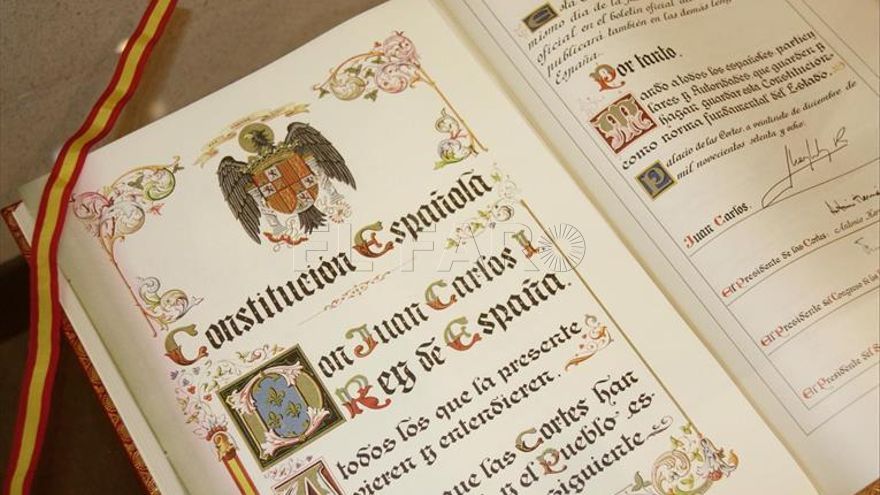 EL FARO
Constitución Española
Don Juan Carlos I
Rey de España.
A todos los que la presente
vieren y entendieren.
que las Cortes han
y el Pueblo
siguiente
mismo día de la
oficial en el boletín oficial
publicará también en las demás
España.
Por tanto,
Mando a todos los españoles, particu
lares y Autoridades, que guarden y
hagan guardar esta Constitución
como norma fundamental del Estado.
Palacio de las Cortes, a veintisiete de diciembre de
mil novecientos setenta y ocho.
Juan Carlos.
El Presidente de las Cortes: Antonio
El Presidente del Congreso de
El Presidente del
El Presidente del